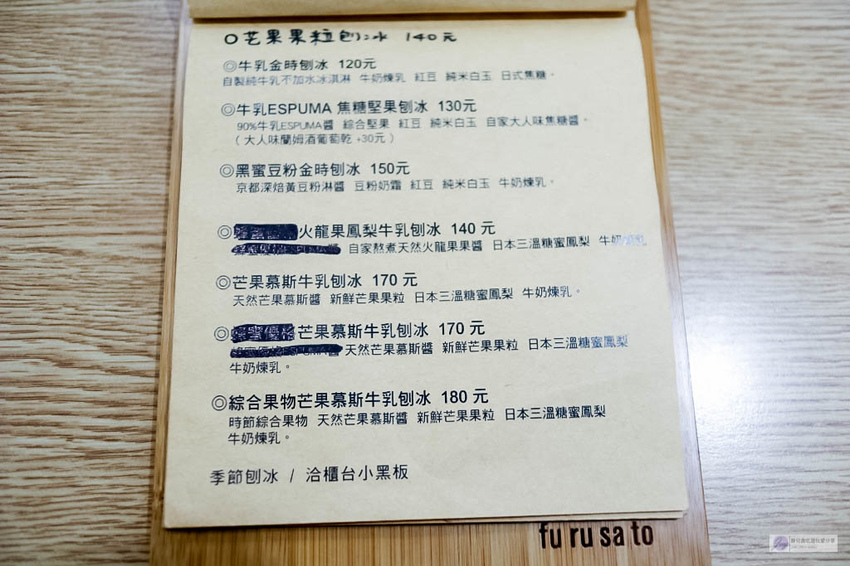 ○芒果果粒刨冰 140元
◎牛乳金時刨冰 120元
自製純牛乳不加水冰淇淋 牛奶煉乳 紅豆 純米白玉 日式焦糖。
◎牛乳ESPUMA 焦糖堅果刨冰 130元
90%牛乳ESPUMA醬 綜合堅果 紅豆 純米白玉 自家大人味焦糖醬。
( 大人味蘭姆酒葡萄乾 +30元 )
◎黑蜜豆粉金時刨冰 150元
京都深焙黃豆粉淋醬 豆粉奶霜 紅豆 純米白玉 牛奶煉乳。
◎火龍果鳳梨牛乳刨冰 140 元
自家熬煮天然火龍果果醬 日本三溫糖蜜鳳梨 牛奶煉乳
◎芒果慕斯牛乳刨冰 170 元
天然芒果慕斯醬 新鮮芒果果粒 日本三溫糖蜜鳳梨 牛奶煉乳。
◎芒果慕斯牛乳刨冰 170 元
天然芒果慕斯醬 新鮮芒果果粒 日本三溫糖蜜鳳梨
牛奶煉乳。
◎綜合果物芒果慕斯牛乳刨冰 180 元
時節綜合果物 天然芒果慕斯醬 新鮮芒果果粒 日本三溫糖蜜鳳梨
牛奶煉乳。
季節刨冰 / 洽櫃台小黑板
fu ru sa to